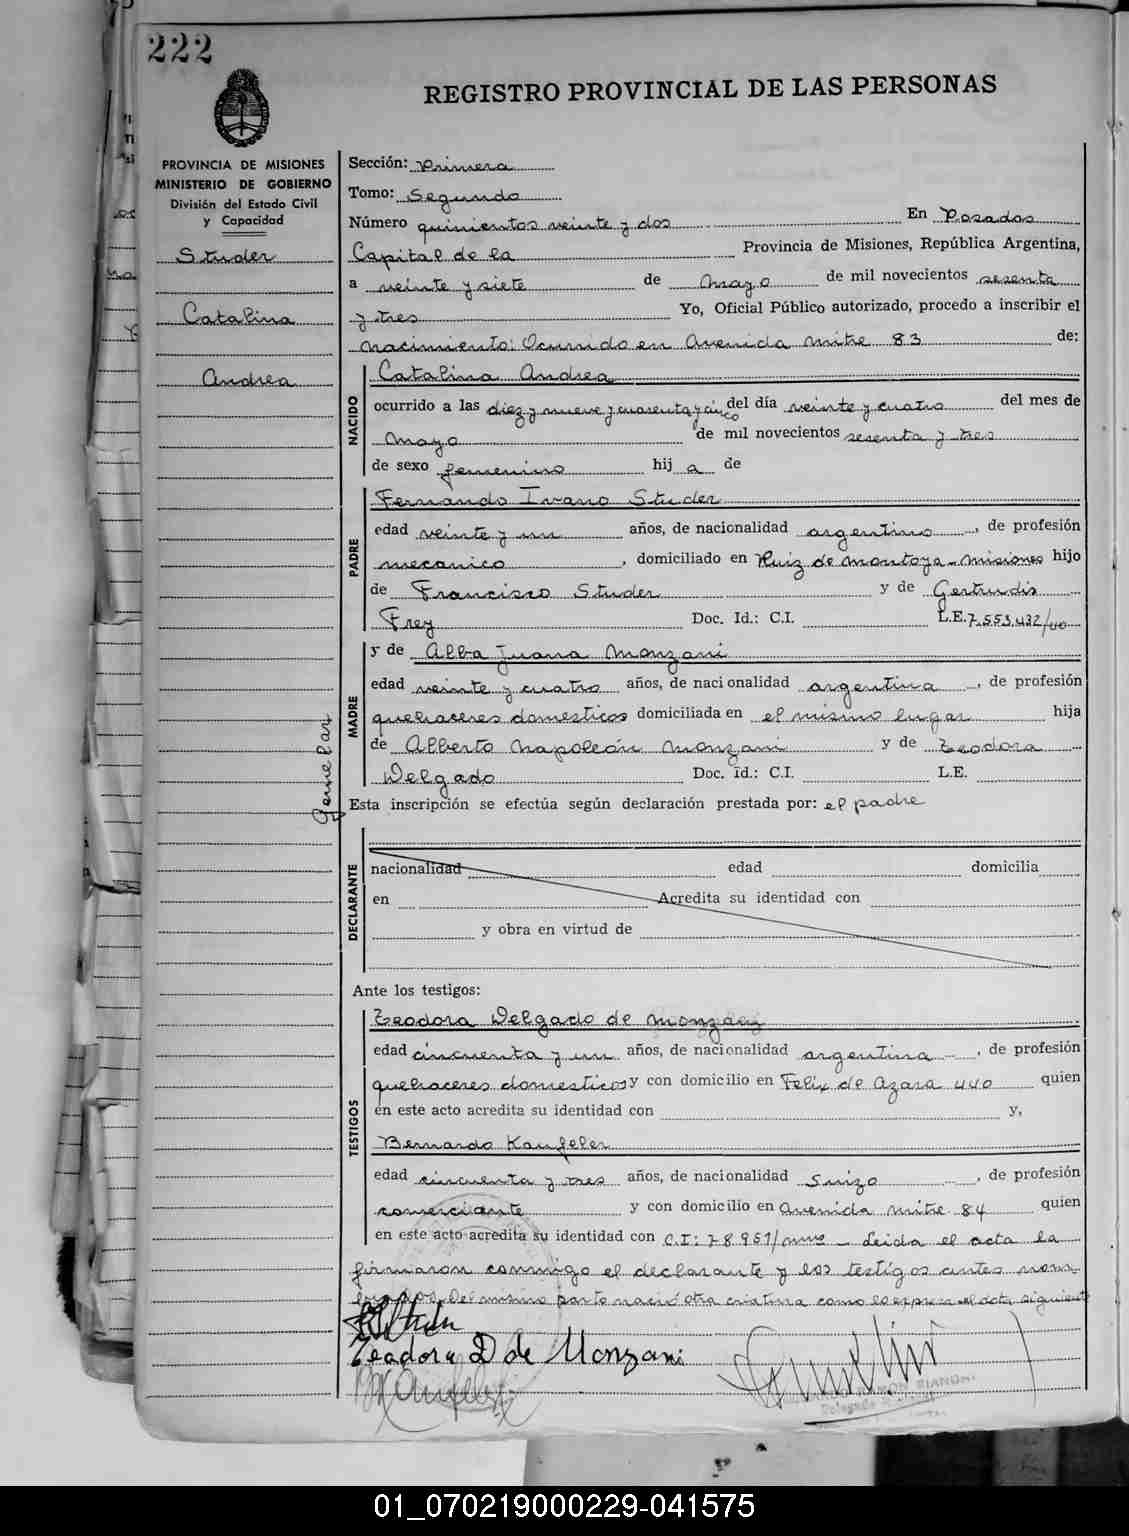 222
REGISTRO PROVINCIAL DE LAS PERSONAS
PROVINCIA DE MISIONES
MINISTERIO DE GOBIERNO
División del Estado Civil
y Capacidad
Studer
Catalina
Andrea
Gemelar
Sección: Primera
Tomo: Segundo
Número quinientos veinte y dos En Posadas
Capital de la Provincia de Misiones, República Argentina,
a veinte y siete de Mayo de mil novecientos sesenta
y tres Yo, Oficial Público autorizado, procedo a inscribir el
nacimiento: Ocurrido en Avenida Mitre 83 de:
NACIDO
Catalina Andrea
ocurrido a las diez y nueve y cuarenta y cinco del día veinte y cuatro del mes de
Mayo de mil novecientos sesenta y tres
de sexo femenino hij a de
PADRE
Fernando Ivano Studer
edad veinte y un años, de nacionalidad argentino, de profesión
mecanico, domiciliado en Ruiz de Montoya - Misiones hijo
de Francisco Studer y de Gertrudis
Frey Doc. Id.: C.I. L.E. 7.553.432/40
MADRE
y de Alba Juana Monzani
edad veinte y cuatro años, de nacionalidad argentina, de profesión
quehaceres domesticos domiciliada en el mismo lugar hija
de Alberto Napoleón Monzani y de Teodora
Delgado Doc. Id.: C.I. L.E.
Esta inscripción se efectúa según declaración prestada por: el padre
DECLARANTE
nacionalidad edad domicilia
en Acredita su identidad con
y obra en virtud de
Ante los testigos:
TESTIGOS
Teodora Delgado de
edad cincuenta y un años, de nacionalidad argentina, de profesión
quehaceres domesticos y con domicilio en Felix de Azara 440 quien
en este acto acredita su identidad con y,
Bernardo Kaufeler
edad cincuenta y tres años, de nacionalidad Suizo, de profesión
comerciante y con domicilio en Avenida Mitre 84 quien
en este acto acredita su identidad con C.I: 78951/mnes - Leida el acta la
firmaron conmigo el declarante y los testigos antes nom-
brados. Del mismo parto nació otra criatura como lo expresa el acta siguiente
Teodora D de Monzani
RAMON BIANCHI
Delegado
01_070219000229-041575